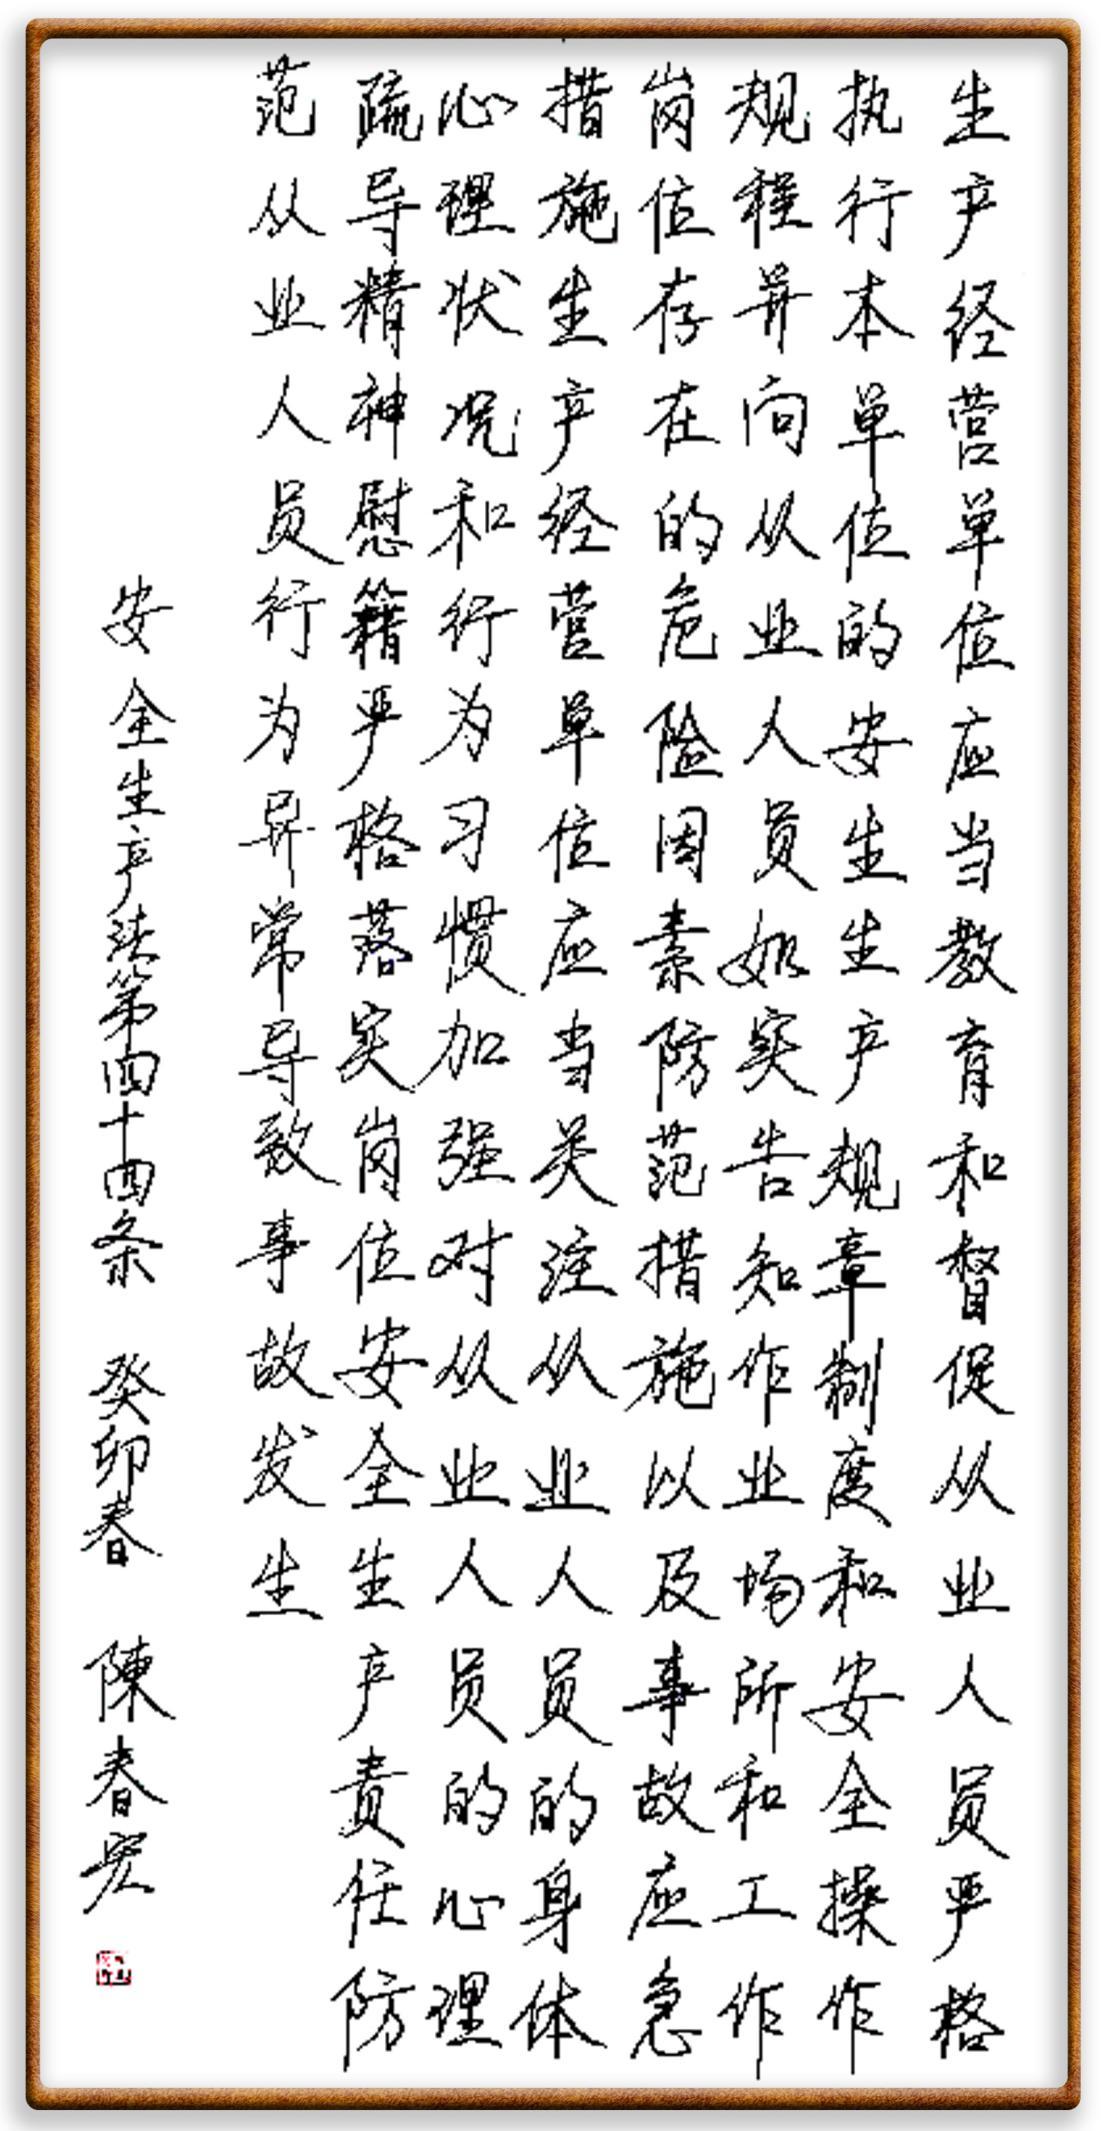 生产经营单位应当教育和督促从业人员严格
执行本单位的安生生产规章制度和安全操作
规程并向从业人员如实告知作业场所和工作
岗位存在的危险因素防范措施以及事故应急
措施生产经营单位应当关注从业人员的身体
心理状况和行为习惯加强对从业人员的心理
疏导精神慰籍严格落实岗位安全生产责任防
范从业人员行为异常导致事故发生
安全生产法第四十四条 癸卯春 陳春宏